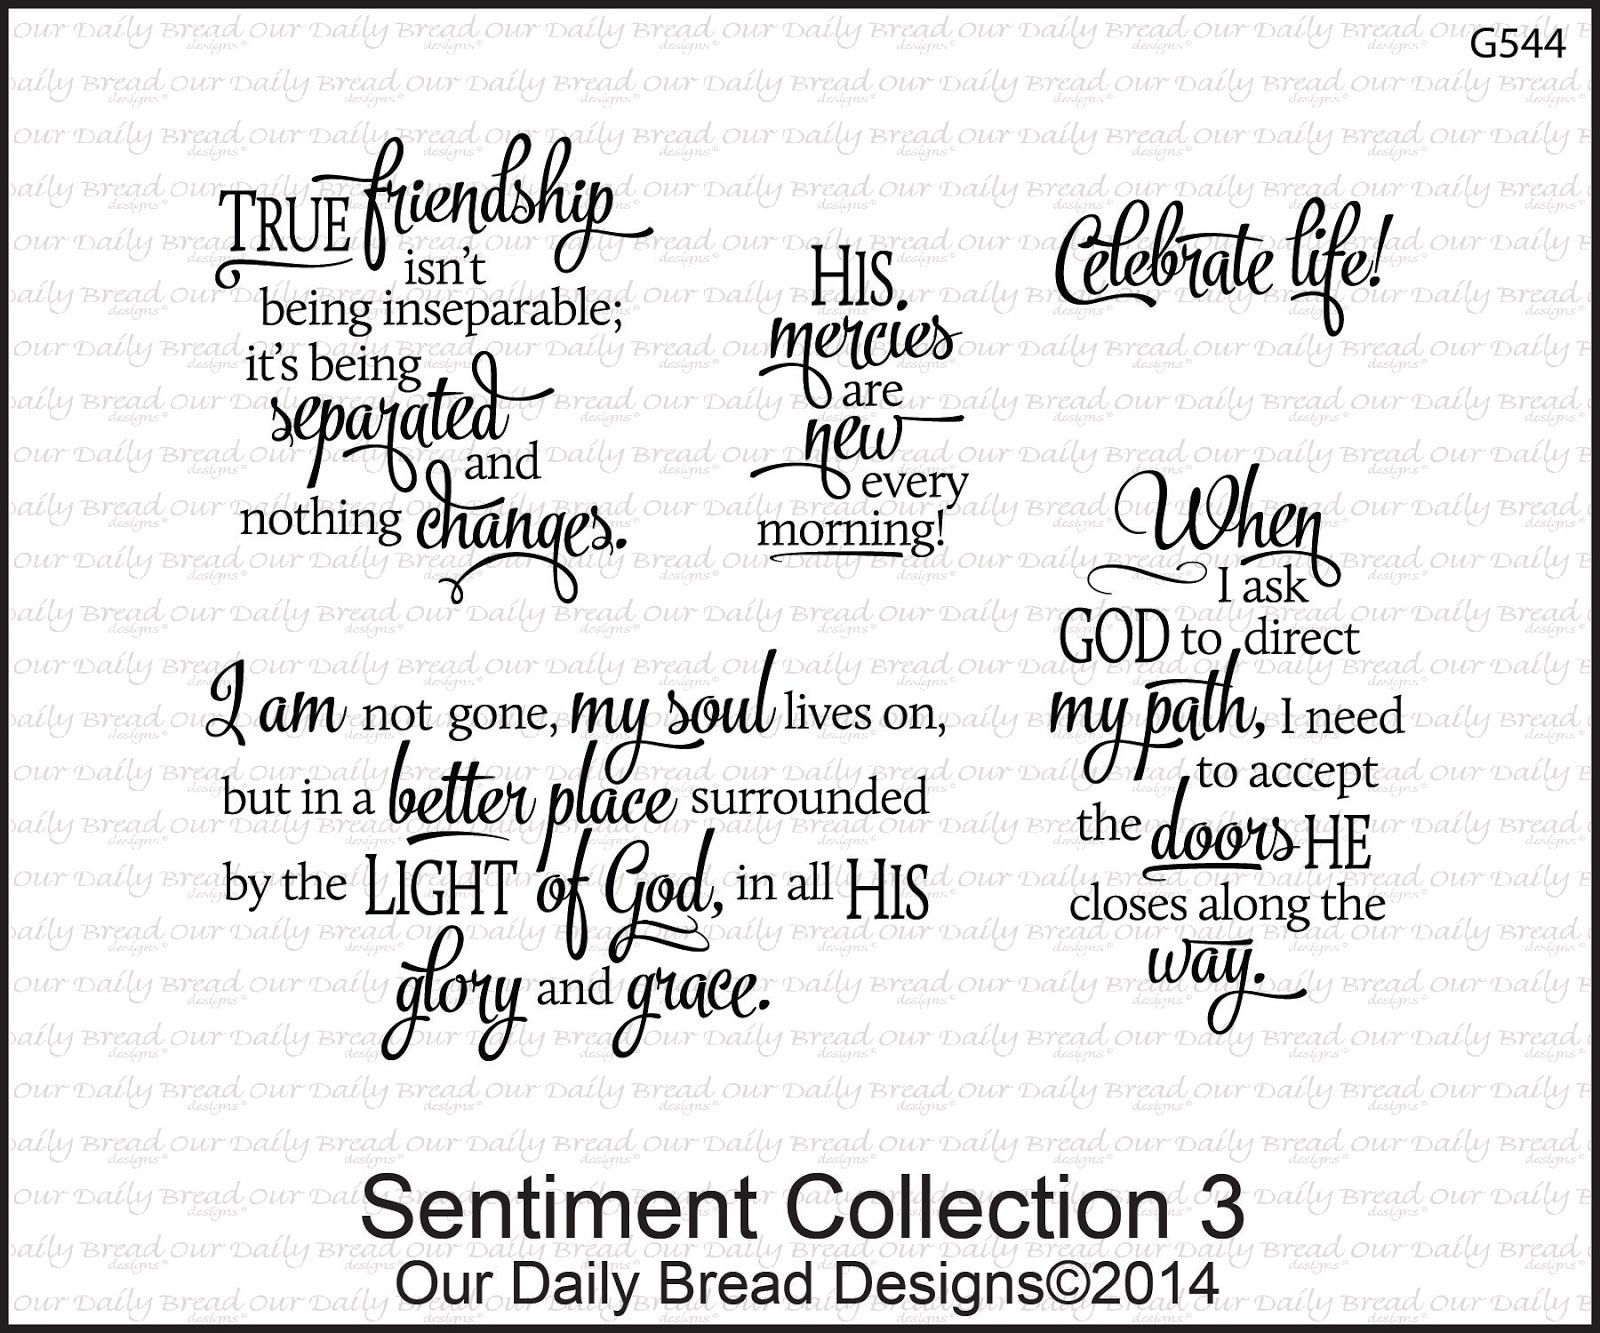 G544
TRUE friendship
isn't
being inseparable;
it's being
separated
and
nothing changes.
HIS
mercies
are
new
every
morning!
Celebrate life!
When
I ask
GOD to direct
my path, I need
to accept
the doors HE
closes along the
way.
I am not gone, my soul lives on,
but in a better place surrounded
by the LIGHT of God, in all HIS
glory and grace.
Sentiment Collection 3
Our Daily Bread Designs©2014
Our Daily Bread designs©